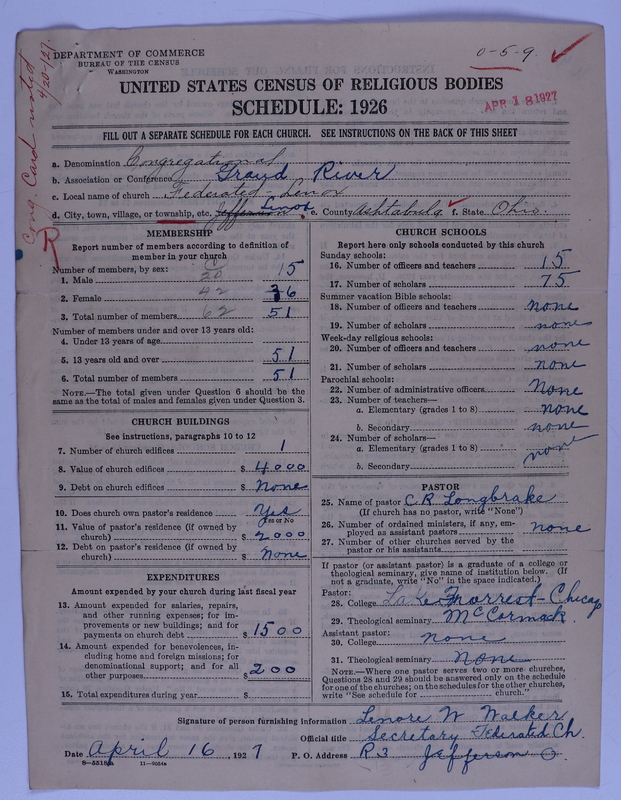 DEPARTMENT OF COMMERCE
BUREAU OF THE CENSUS
WASHINGTON
0-5-9
Cong. Card noted 4/20/27.
UNITED STATES CENSUS OF RELIGIOUS BODIES
SCHEDULE: 1926
APR 18 1927
FILL OUT A SEPARATE SCHEDULE FOR EACH CHURCH. SEE INSTRUCTIONS ON THE BACK OF THIS SHEET
a. Denomination Congregational
b. Association or Conference Grand River
c. Local name of church Federated - Lenox
d. City, town, village, or township, etc. Jefferson Lenox e. County Ashtabula f. State Ohio.
R
MEMBERSHIP
Report number of members according to definition of
member in your church
Number of members, by sex:
1. Male 20 15
2. Female 42 36
3. Total number of members 62 51
Number of members under and over 13 years old:
4. Under 13 years of age
5. 13 years old and over 51
6. Total number of members 51
NOTE.—The total given under Question 6 should be the
same as the total of males and females given under Question 3.
CHURCH BUILDINGS
See instructions, paragraphs 10 to 12
7. Number of church edifices 1
8. Value of church edifices $ 4000
9. Debt on church edifices $ None
10. Does church own pastor's residence? Yes
Yes or No
11. Value of pastor's residence (if owned by
church) $ 2000
12. Debt on pastor's residence (if owned by
church) $ None
EXPENDITURES
Amount expended by your church during last fiscal year
13. Amount expended for salaries, repairs,
and other running expenses; for im-
provements or new buildings; and for
payments on church debt $ 1500
14. Amount expended for benevolences, in-
cluding home and foreign missions; for
denominational support; and for all
other purposes $ 200
15. Total expenditures during year $
CHURCH SCHOOLS
Report here only schools conducted by this church
Sunday schools:
16. Number of officers and teachers 15
17. Number of scholars 75
Summer vacation Bible schools:
18. Number of officers and teachers none
19. Number of scholars none
Week-day religious schools:
20. Number of officers and teachers none
21. Number of scholars none
Parochial schools:
22. Number of administrative officers None
23. Number of teachers—
a. Elementary (grades 1 to 8) none
b. Secondary none
24. Number of scholars—
a. Elementary (grades 1 to 8) none
b. Secondary
PASTOR
25. Name of pastor C. R. Longbrake
(If church has no pastor, write "None")
26. Number of ordained ministers, if any, em-
ployed as assistant pastors none
27. Number of other churches served by the
pastor or his assistants
If pastor (or assistant pastor) is a graduate of a college or
theological seminary, give name of institution below. (If
not a graduate, write "No" in the space indicated.)
Pastor:
28. College Lake Forrest - Chicago
29. Theological seminary McCormack.
Assistant pastor:
30. College none
31. Theological seminary None
NOTE.—Where one pastor serves two or more churches,
Questions 28 and 29 should be answered only on the schedule
for one of the churches; on the schedules for the other churches,
write "See schedule for church."
Signature of person furnishing information Lenore W Walker
Official title Secretary Federated Ch.
Date April 16, 1927 P. O. Address R 3 Jefferson O.
11-9054a